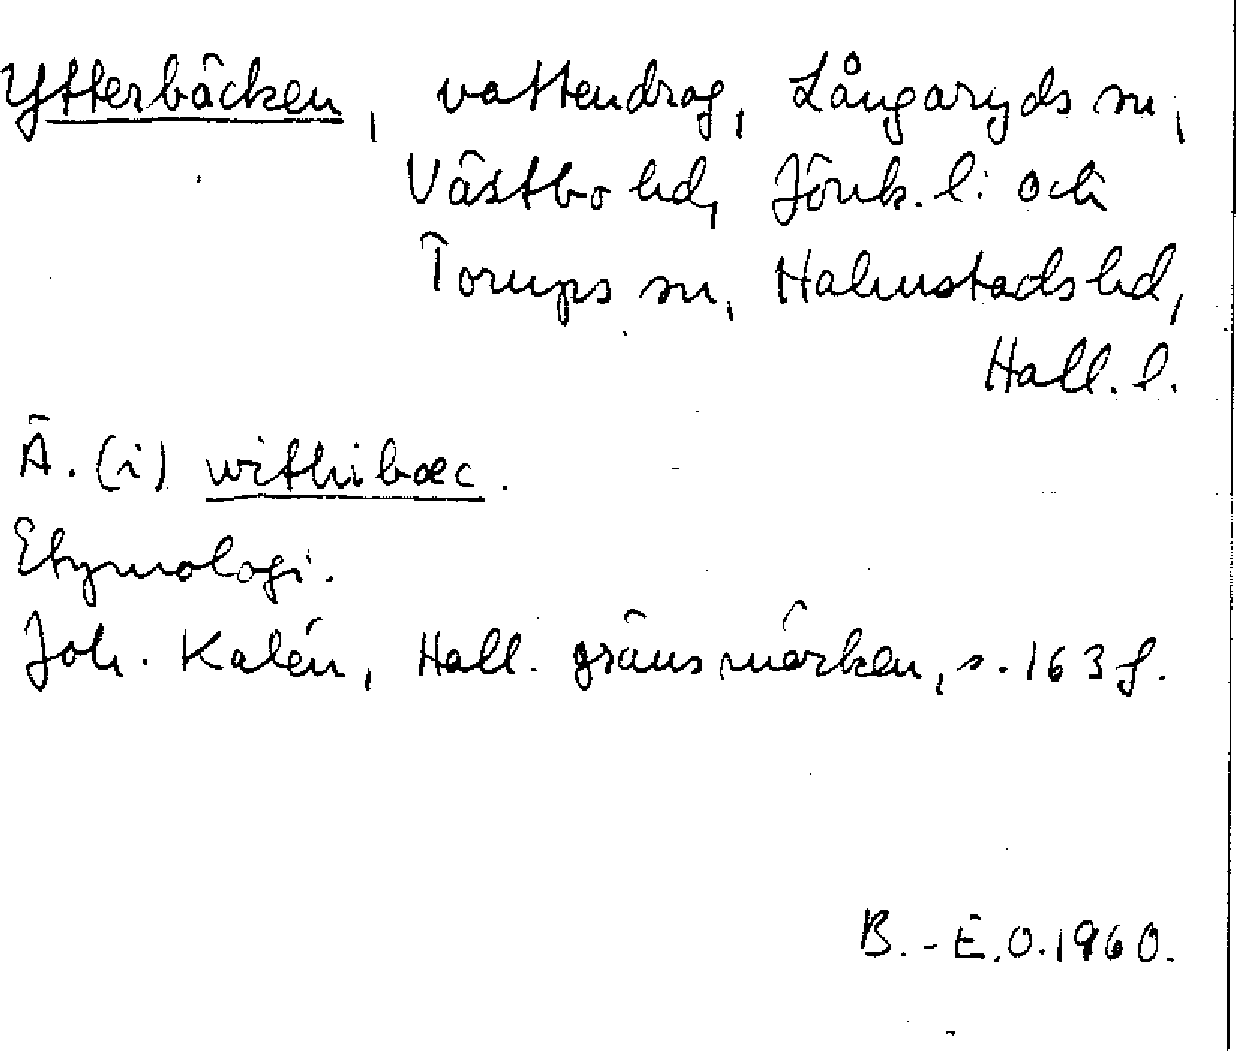 Ytterbäcken, vattendrag, Långaryds sn,
Västbo hd, Jönk. l. och
Torups sn, Halmstads hd,
Hall. l.
Ä. (i) withibæc.
Etymologi.
Joh. Kalén, Hall. gränsmärken, s. 163 f.
B.-E.O. 1960.